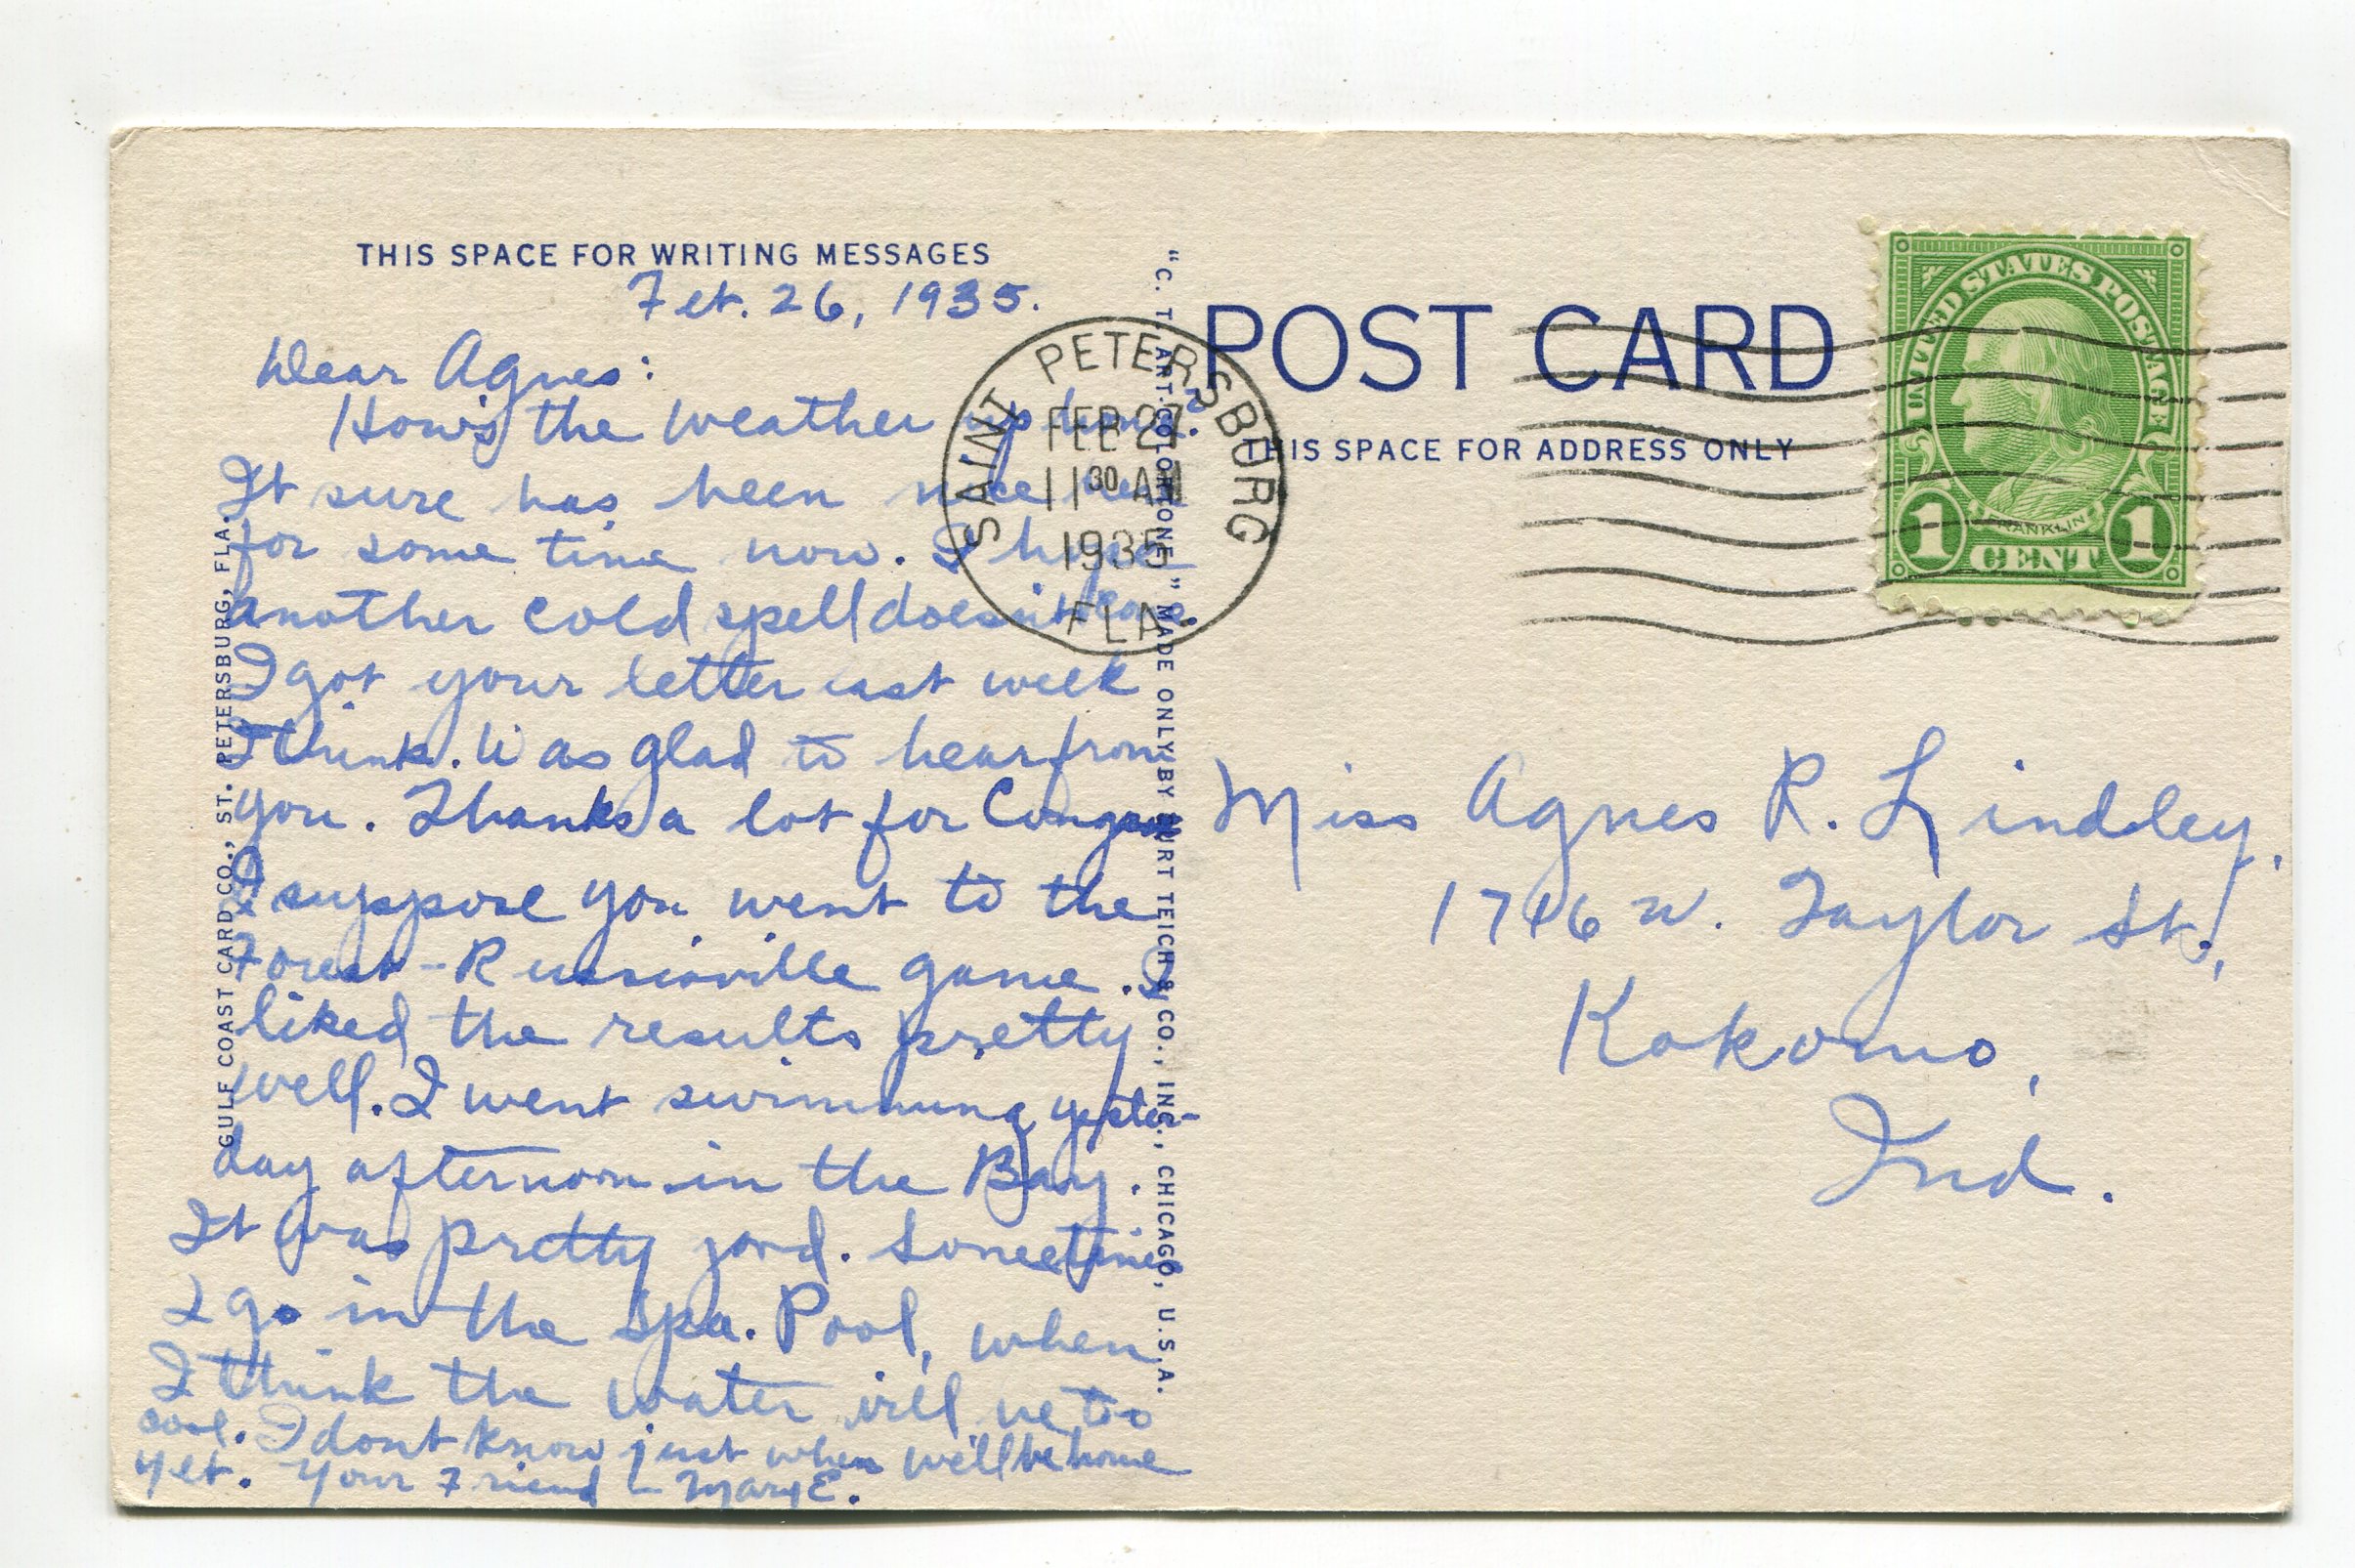 THIS SPACE FOR WRITING MESSAGES
Feb. 26, 1935.
Dear Agnes:
How's the weather up
It sure has been nice here
for some time now. I hope
another cold spell doesn't
I got your letter last week
I think. Was glad to hear from
you. Thanks a lot for
I suppose you went to the
Forest-Russiaville game. I
liked the results pretty
well. I went swimming yester-
day afternoon in the Bay.
It was pretty good. Sometimes
I go in the Spa. Pool, when
I think the water will be too
cool. I dont know just when we'll be home
yet. Your Friend - Mary E.
GULF COAST CARD CO., ST. PETERSBURG, FLA.
"C. T. ART-COLORTONE" MADE ONLY BY CURT TEICH & CO., INC., CHICAGO, U.S.A.
SAINT PETERSBURG
FEB 27
11 30 AM
1935
FLA
POST CARD
THIS SPACE FOR ADDRESS ONLY
UNITED STATES POSTAGE
FRANKLIN
1 CENT 1
Miss Agnes R. Lindley,
1716 W. Taylor St.,
Kokomo,
Ind.